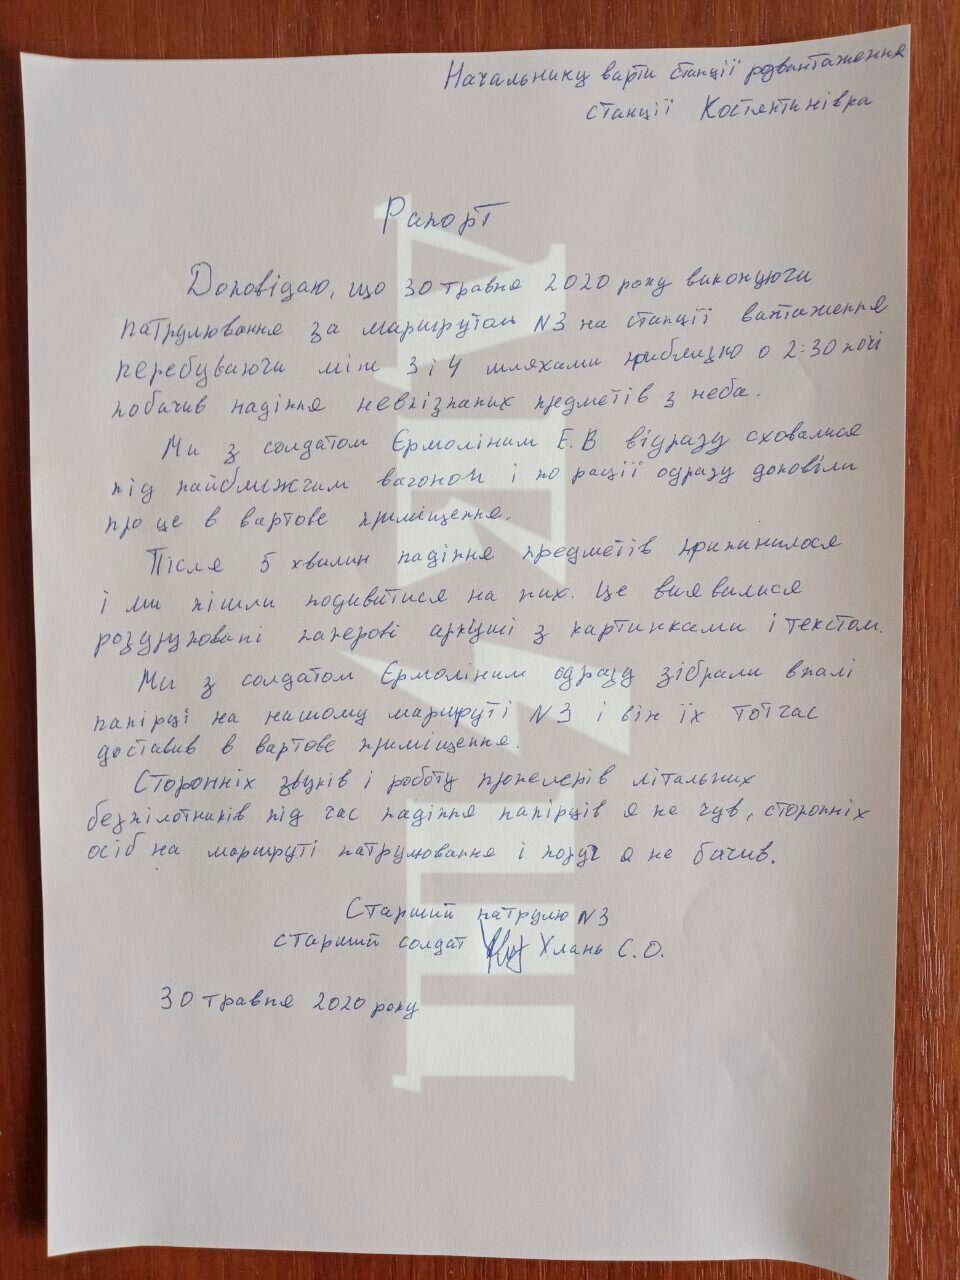 Начальнику варти станції розвантаження
станції Костянтинівка
Рапорт
Доповідаю, що 30 травня 2020 року виконуючи
патрулювання за маршрутом №3 на станції вантаження
перебуваючи між 3 і 4 шляхами приблизно о 2:30 ночі
побачив падіння невпізнаних предметів з неба.
Ми з солдатом Єрмоліним Е.В. відразу сховалися
під найближчим вагоном і по рації одразу доповіли
про це в вартове приміщення.
Після 5 хвилин падіння предметів припинилося
і ми пішли подивитися на них. Це виявилися
роздруковані паперові аркуші з картинками і текстом.
Ми з солдатом Єрмоліним одразу зібрали впалі
папірці на нашому маршруті №3 і він їх тотчас
доставив в вартовє приміщення.
Сторонніх звуків і роботу пропелерів літальних
безпілотників під час падіння папірців я не чув, сторонніх
осіб на маршруті патрулювання і поруч я не бачив.
Старший патрулю №3
старший солдат Хлань С.О.
30 травня 2020 року